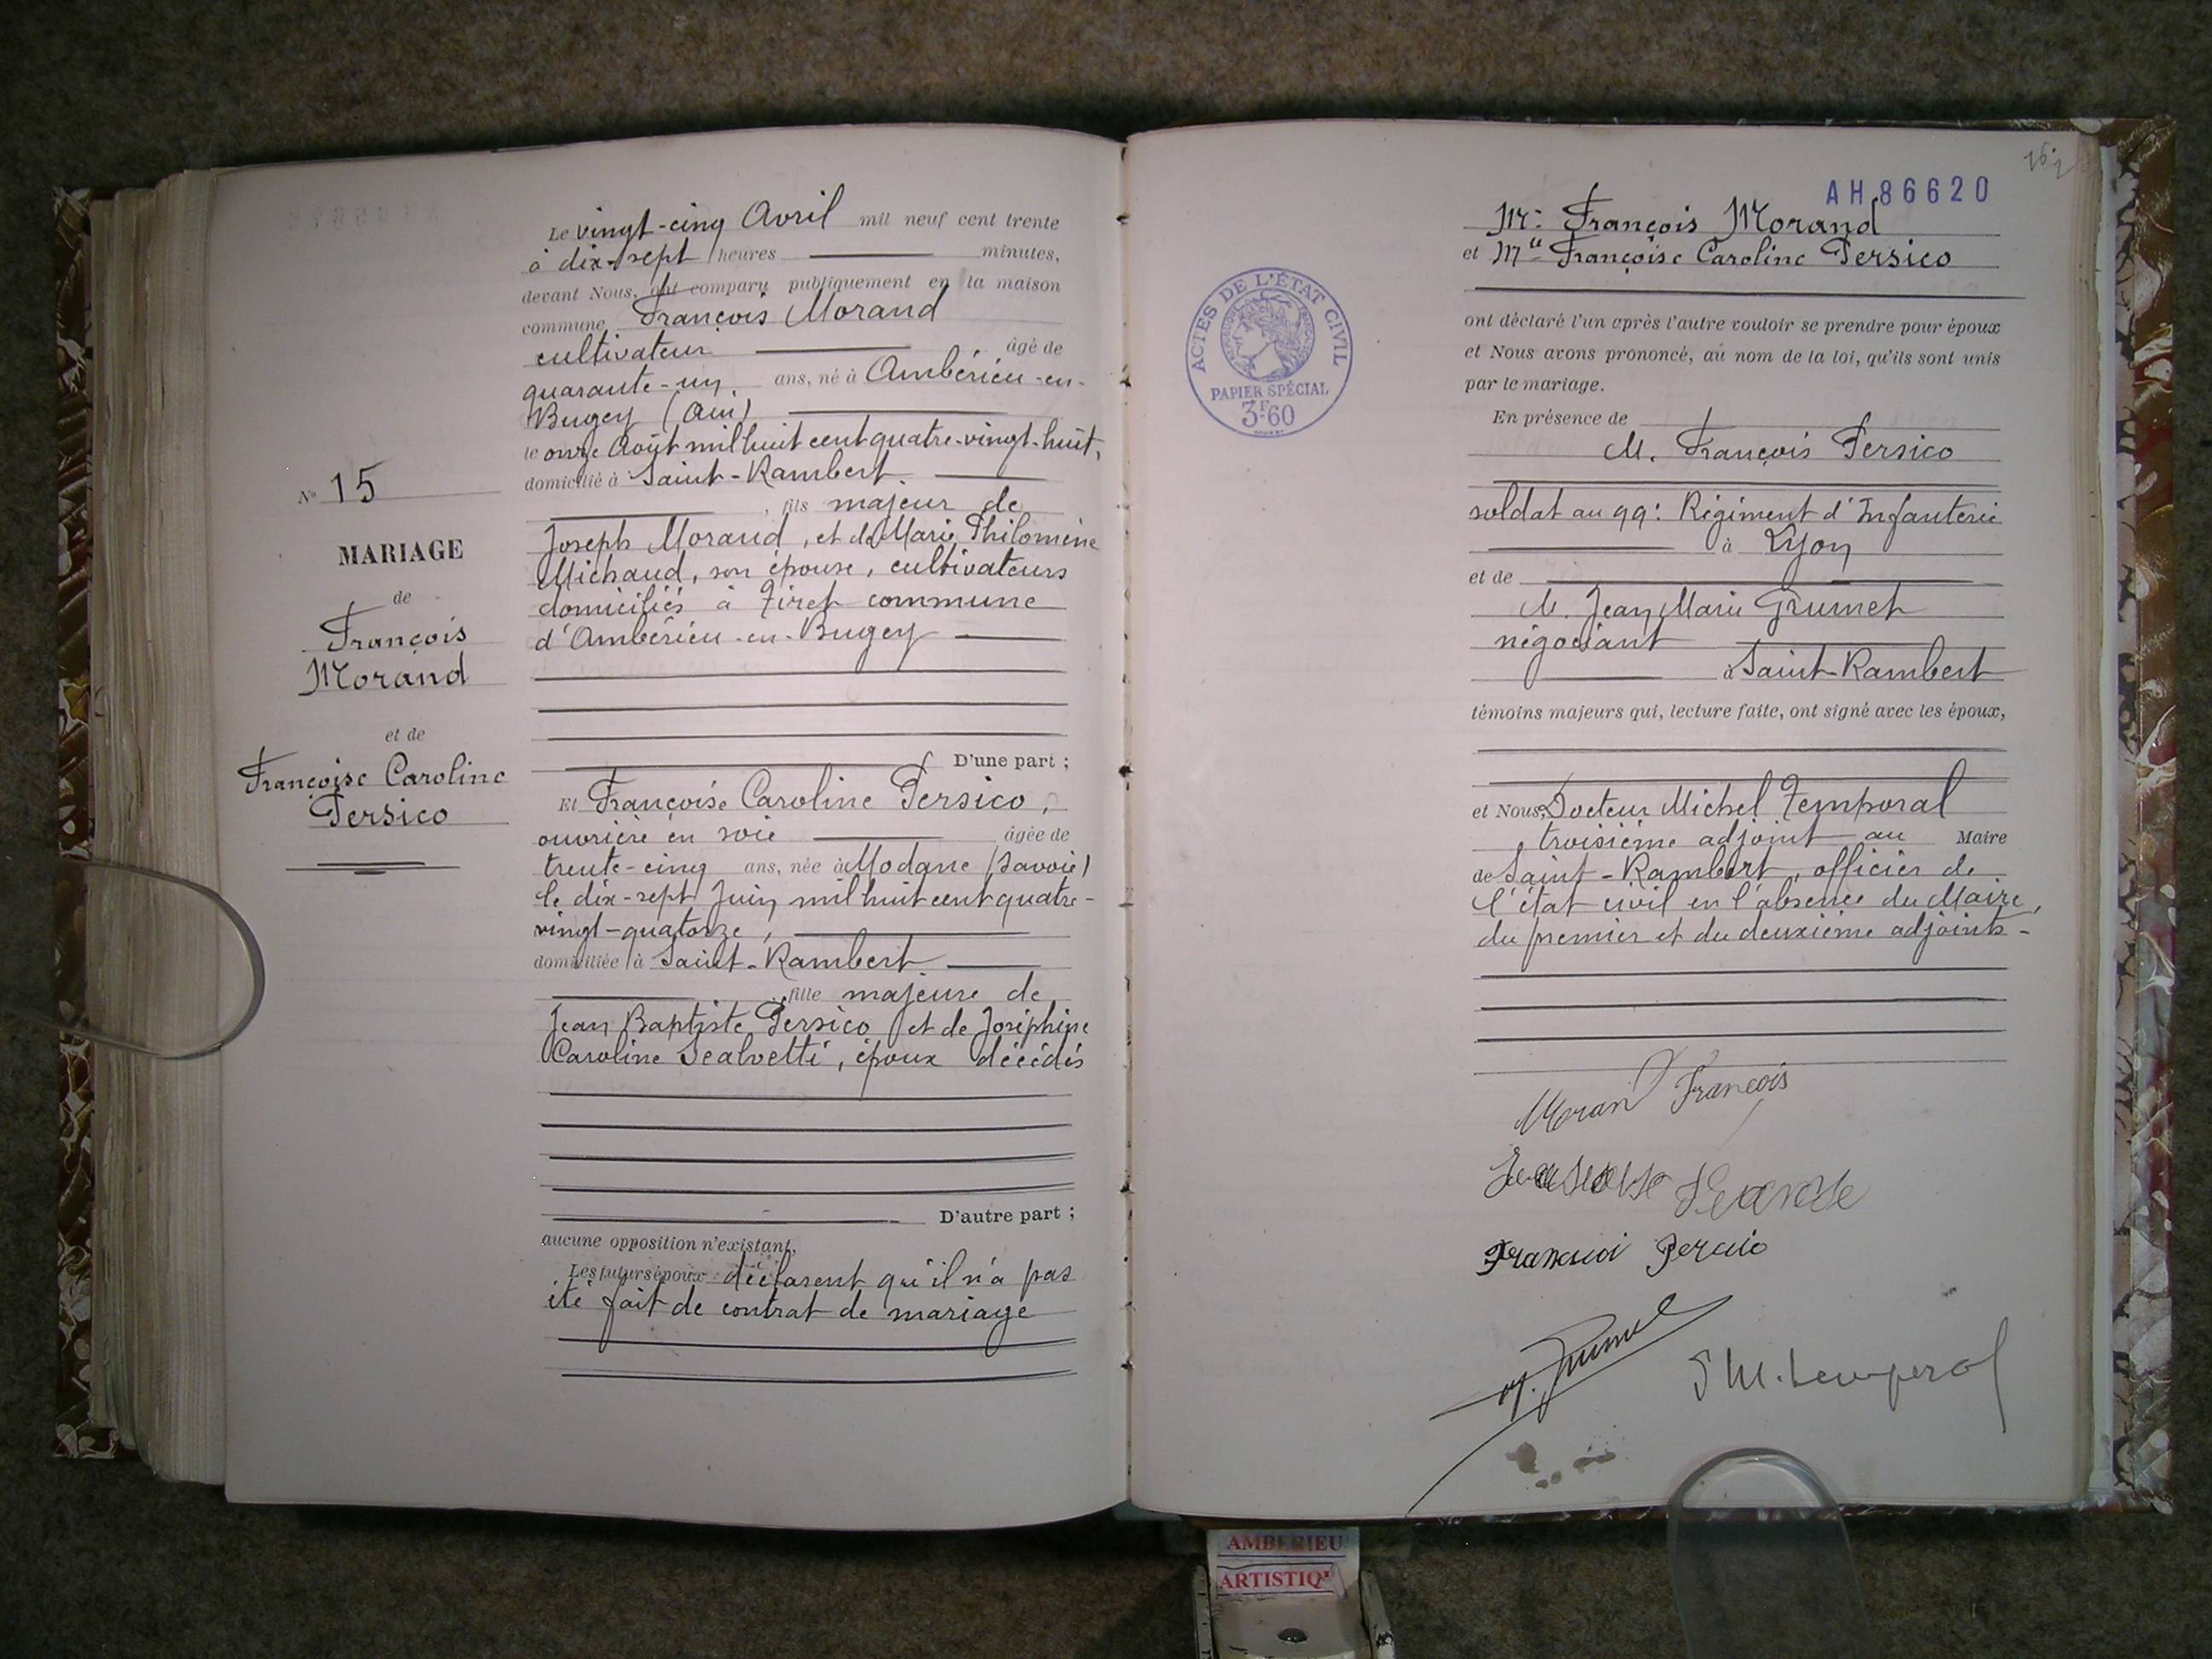 Le vingt-cinq Avril mil neuf cent trente
à dix-sept heures minutes,
devant Nous, ont comparu publiquement en la maison
commune François Morand
cultivateur âgé de
quarante-un ans, né à Ambérieu-en-
Bugey (Ain)
le onze Août mil huit cent quatre-vingt-huit,
domicilié à Saint-Rambert
, fils majeur de
Joseph Morand, et de Marie Philomène
Michaud, son épouse, cultivateurs
domiciliés à Tiret commune
d'Ambérieu-en-Bugey
D'une part ;
Nº 15
MARIAGE
de
François
Morand
et de
Françoise Caroline
Persico
Et Françoise Caroline Persico,
ouvrière en soie âgée de
trente-cinq ans, née à Modane (Savoie)
le dix-sept Juin mil huit cent quatre-
vingt-quatorze,
domiciliée à Saint-Rambert
, fille majeure de
Jean Baptiste Persico et de Joséphine
Caroline Scalvetti, époux décédés
D'autre part ;
aucune opposition n'existant,
Les futurs époux déclarent qu'il n'a pas
été fait de contrat de mariage
AH 86620
Mr François Morand
et Mlle Françoise Caroline Persico
ont déclaré l'un après l'autre vouloir se prendre pour époux
et Nous avons prononcé, au nom de la loi, qu'ils sont unis
par le mariage.
En présence de
M. François Persico
soldat au 99e Régiment d'Infanterie
à Lyon
et de
M. Jean Marie Grumet
négociant
à Saint-Rambert
témoins majeurs qui, lecture faite, ont signé avec les époux,
et Nous, Docteur Michel Temporal
troisième adjoint au Maire
de Saint-Rambert, officier de
l'état civil en l'absence du Maire,
du premier et du deuxième adjoints-
Moran François
ACTES DE L'ÉTAT CIVIL
PAPIER SPÉCIAL
3F60
AMBERIEU
ARTISTIQ